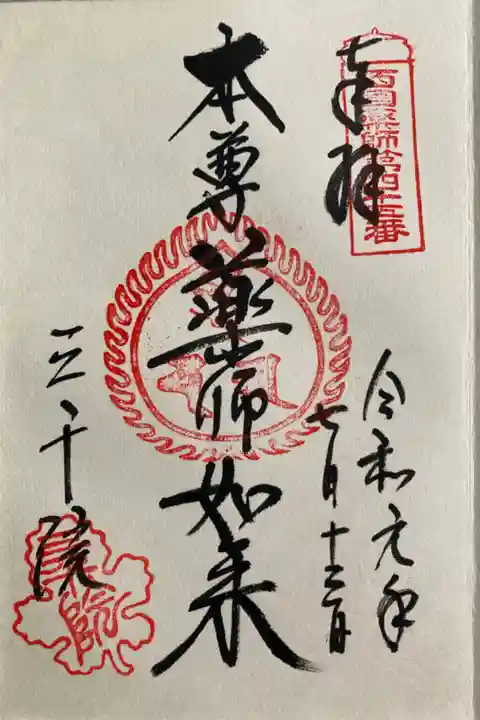 奉拝
西国薬師第四十五番
令和元年
七月十三日
本尊薬師如来
三千院